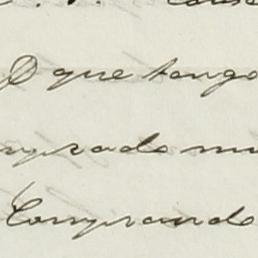 D que tengo
mprado mu
Comprando